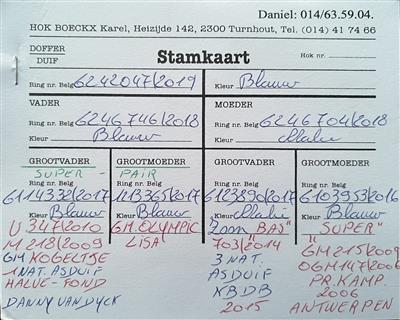 Daniel: 014/63.59.04.
HOK BOECKX Karel, Heizijde 142, 2300 Turnhout, Tel. (014) 41 74 66
DOFFER
DUIF
Stamkaart
Hok nr.
Ring nr. Belg 6242047/2019
Kleur Blauw
VADER
Ring nr. Belg 6246746/2018
Kleur Blauw
MOEDER
Ring nr. Belg 6246704/2018
Kleur
GROOTVADER
SUPER -
Ring nr. Belg
6114332/2017
Kleur Blauw
U 347/2010
M 218/2009
GM KOGELTJE
1 NAT. ASDUIF
HALVE-FOND
DANNY VAN DYCK
GROOTMOEDER
PAIR
Ring nr. Belg
1113365/2017
Kleur Blauw
GM. OLYMPIC
LISA
GROOTVADER
Ring nr. Belg
6123890/2017
Kleur
Zoon "BAS"
703/2014
3 NAT.
ASDUIF
KBDB
2015
GROOTMOEDER
Ring nr. Belg
6103953/2016
Kleur Blauw
"SUPER"
GM 215/2009
OGM 147/2006
PR. KAMP.
2006
ANTWERPEN